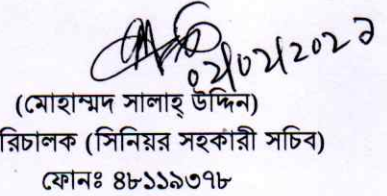 ০২/০২/২০২১
(মোহাম্মদ সালাহ্ উদ্দিন)
রিচালক (সিনিয়র সহকারী সচিব)
ফোনঃ ৪৮১১৯৩৭৮